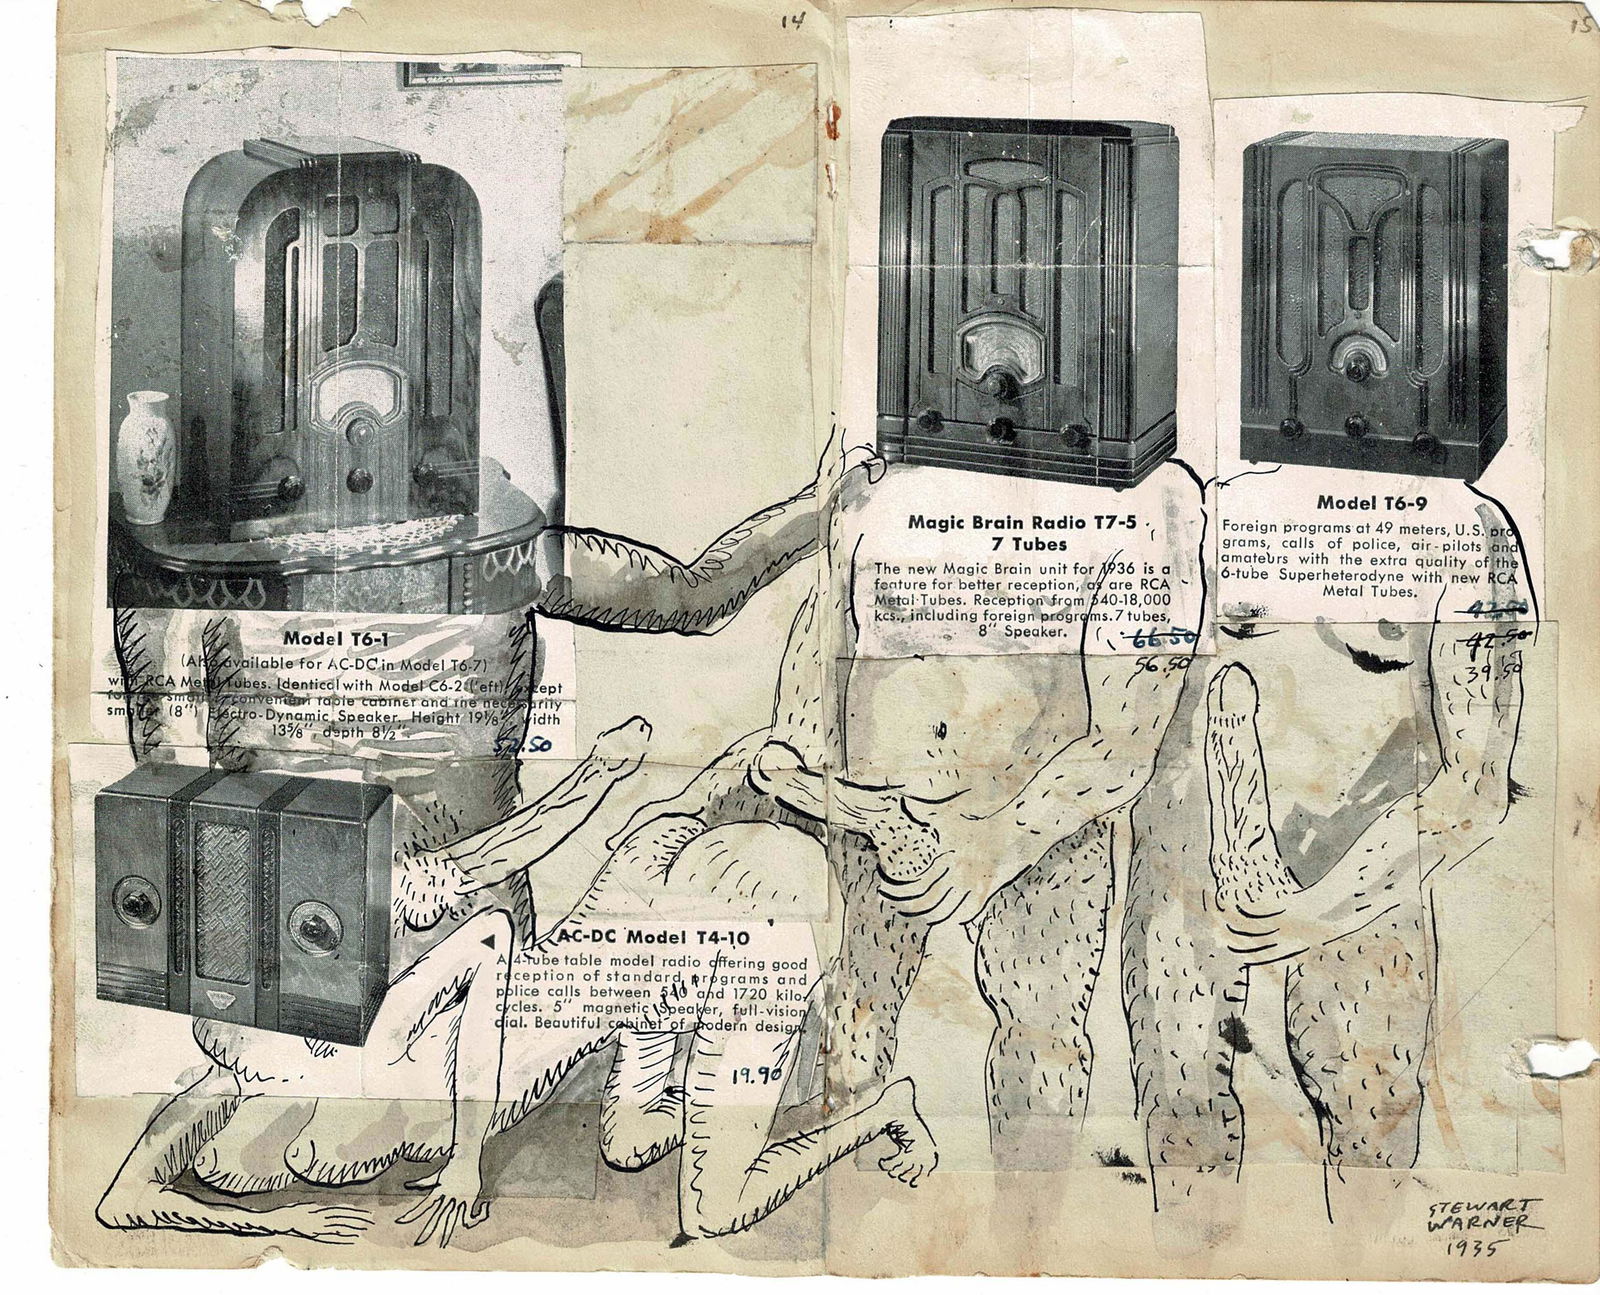 14
15
Model T6-1
(Also available for AC-DC in Model T6-7)
with RCA Metal Tubes. Identical with Model C6-2 (left) except
for the smaller convenient table cabinet and the necessarily
smaller (8") Electro-Dynamic Speaker. Height 19⅛", width
13⅝", depth 8½".
52.50
AC-DC Model T4-10
A 4-tube table model radio offering good
reception of standard programs and
police calls between 540 and 1720 kilo-
cycles. 5" magnetic Speaker, full-vision
dial. Beautiful cabinet of modern design.
19.90
Magic Brain Radio T7-5
7 Tubes
The new Magic Brain unit for 1936 is a
feature for better reception, as are RCA
Metal Tubes. Reception from 540-18,000
kcs., including foreign programs. 7 tubes,
8" Speaker.
66.50
56.50
Model T6-9
Foreign programs at 49 meters, U.S. pro
grams, calls of police, air-pilots and
amateurs with the extra quality of the
6-tube Superheterodyne with new RCA
Metal Tubes.
42.50
39.50
STEWART
WARNER
1935